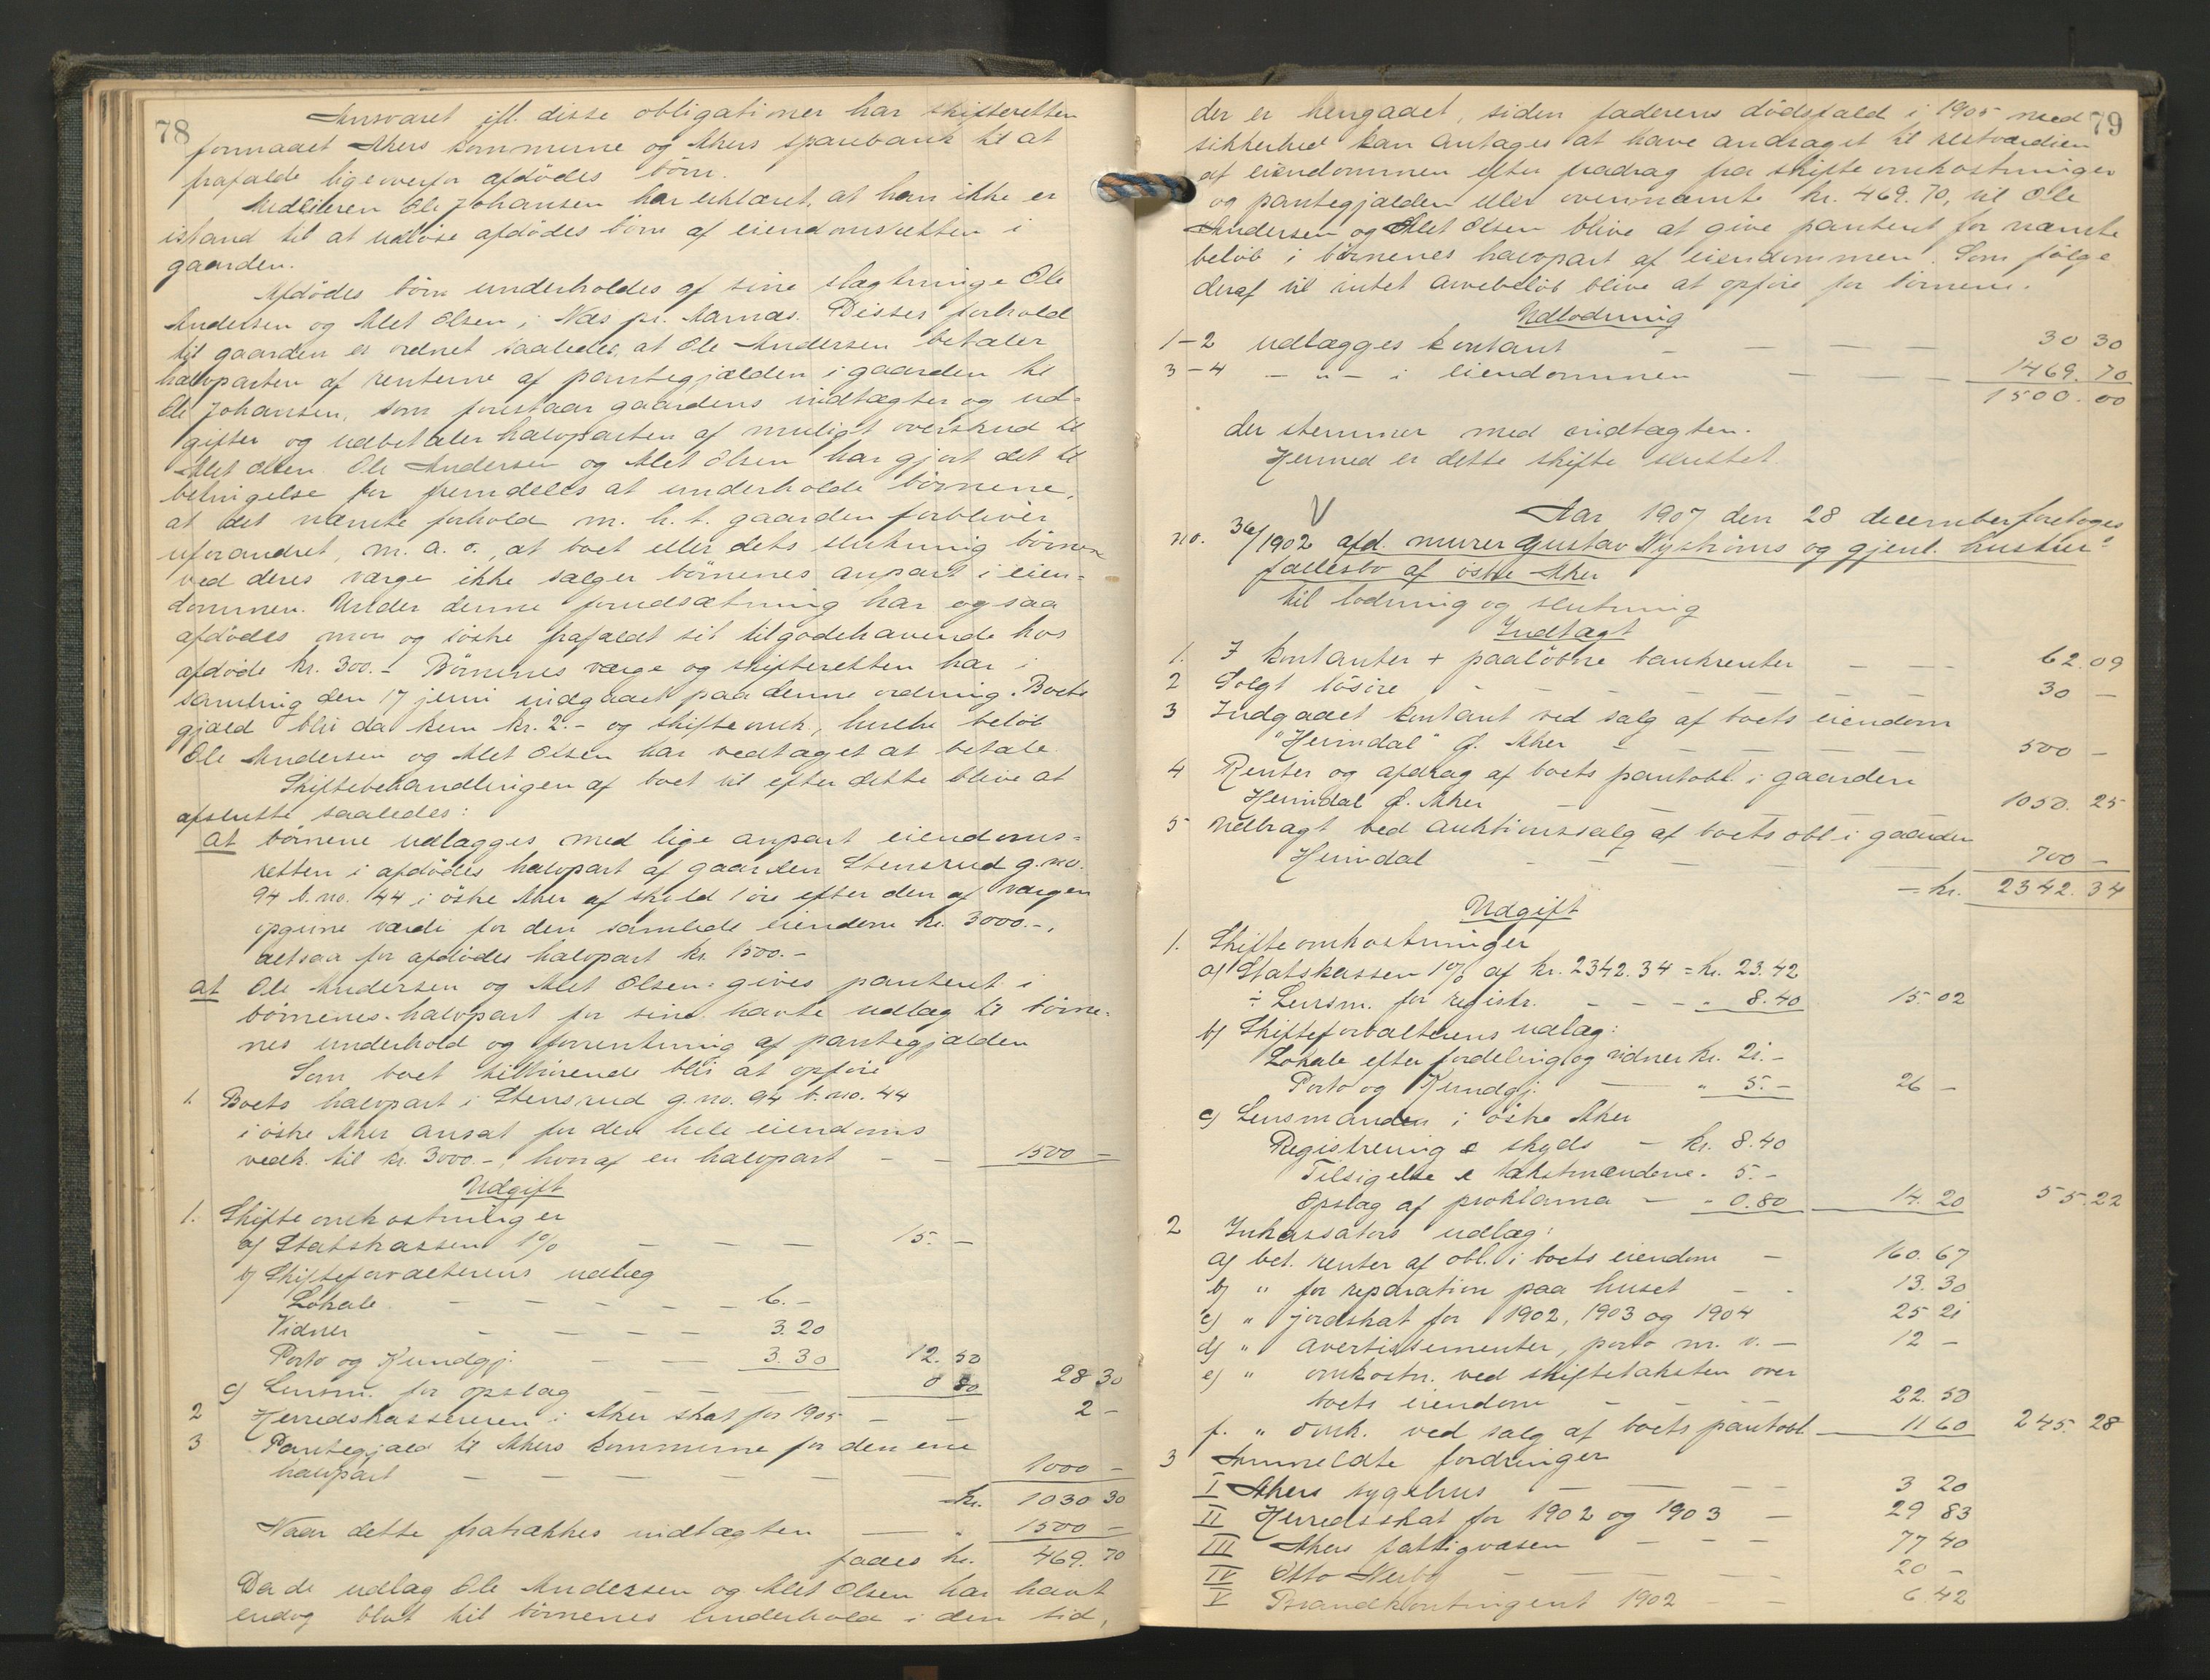 78
Ansvaret ifl. disse obligationer har skifteretten
formaaet Akers kommune og Akers sparebank til at
frafalde ligeoverfor afdødes børn.
Medeieren Ole Johansen har erklæret, at han ikke er
istand til at udløse afdødes børn af eiendomsretten i
gaarden.
Afdødes børn underholdes af sine slægtninge Ole
Andersen og Alet Olsen, Næs pr. Aarnæs. Disses forhold
til gaarden er ordnet saaledes, at Ole Andersen betaler
halvparten af renterne af pantegjælden i gaarden til
Ole Johansen, som forestaar gaardens indtægter og ud-
gifter og udbetaler halvparten af muligt overskud til
Alet Olsen. Ole Andersen og Alet Olsen har gjort det til
betingelse for fremdeles at underholde børnene,
at det nævnte forhold m. h. t. gaarden forbliver
uforandret, m. a. o., at boet eller dets slutning børnene
ved deres værge ikke sælger børnenes anpart i eien-
dommen. Under denne forudsætning har ogsaa
afdødes mor og søstre frafaldt sit tilgodehavende hos
afdøde kr. 300.- Børnenes værge og skifteretten har i
samling den 17 juni indgaaet paa denne ordning. Boets
gjæld blir da kun kr. 2.- og skifteomk., hvilke beløb
Ole Andersen og Alet Olsen har vedtaget at betale.
Skiftebehandlingen af boet vil efter dette blive at
afslutte saaledes:
at børnene udlægges med lige anpart eiendoms-
retten i afdødes halvpart af gaarden Stensrud g.no.
94 b.no. 144 i østre Aker af skyld 1 øre efter den af værgen
opgivne værdi for den samlede eiendom kr. 3000.-,
altsaa for afdødes halvpart kr. 1500.-
at Ole Andersen og Alet Olsen gives panteret i
børnenes halvpart for sine havte udlæg til børne-
nes underhold og forrentning af pantegjælden
Som boet tilhørende blir at opføre
1. Boets halvpart i Stensrud g.no. 94 b.no. 44
i østre Aker ansat for den hele eiendoms
vedk. til kr. 3000.-, hvoraf en halvpart - - 1500 -
Udgift
1. Skifteomkostninger
a) Statskassen 1% - - - 15. -
b) Skifteforvalterens udlæg
Lokale - - - - - 6. -
Vidner - - - - 3.20
Porto og Kundgj. - - 3.30 12.50
c) Lensm. for opslag - - - 0 80 28 30
2 Herredskassereren i Aker skat for 1905 - - 2 -
3 Pantegjæld til Akers kommune for den ene
halvpart - - - - - - 1000 -
kr. 1030 30
Naar dette fratrækkes indtægten - " 1500 -
faaes kr. 469.70
Da de udlæg Ole Andersen og Alet Olsen har havt
endog blot til børnenes underhold i den tid,
79
der er hengaaet, siden faderens dødsfald i 1905 med
sikkerhed kan antages at have andraget til restværdien
af eiendommen efter fradrag fra skifteomkostninger
og pantegjælden eller ovennævnte kr. 469.70, vil Ole
Andersen og Alet Olsen blive at give panteret for nævnte
beløb i børnenes halvpart af eiendommen. Som følge
deraf vil intet arvebeløb blive at opføre for børnene.
Udlodning
1-2 udlægges kontant - - - - 30 30
3-4 - " - i eiendommen - - - 1469.70
1500.00
der stemmer med indtægten.
Hermed er dette skifte sluttet.
V
Aar 1907 den 28 december foretoges
no. 36/1902 afd. murer Gustav Nystrøms og gjenl. hustrus
fællesbo af østre Aker
til lodning og slutning
Indtægt
1. I kontanter + paaløbne bankrenter - - - 62.09
2 Solgt løsøre - - - - - - - 30 -
3 Indgaaet kontant ved salg af boets eiendom
"Heimdal" Ø. Aker - - - - 500 -
4 Renter og afdrag af boets pantobl. i gaarden
Heimdal Ø. Aker - - - - 1050.25
5 Udbragt ved auktionssalg af boets obl. i gaarden
Heimdal - - - - - 700 -
= kr. 2342.34
Udgift
1. Skifteomkostninger
a) Statskassen 1% af kr. 2342.34 = kr. 23.42
÷ Lensm. for registr. - - - " 8.40 15.02
b) Skifteforvalterens udlæg:
Lokale efter fordeling og vidner kr. 21.-
Porto og Kundgj. - " 5.- 26 -
c) Lensmanden i østre Aker
Registrering & skyds - kr. 8.40
Tilsigelse & takstmændene " 5.-
Opslag af proklama - " 0.80 14.20 55.22
2 Inkassators udlæg:
a) bet. renter af obl. i boets eiendom - 160.67
b) " for reparation paa huset - - 13.30
c) " jordskat for 1902, 1903 og 1904 25 21
d) " avertissementer, porto m. v. - 12 -
e) " omkostn. ved skiftetaksten over
boets eiendom - - - 22.50
f. " omk. ved salg af boets pantobl. - 11 60 245.28
3 Anmeldte fordringer
I Akers sygehus - - - - 3 20
II Herredsskat for 1902 og 1903 - 29 83
III Akers fattigvæsen - - - 77 40
IV Otto - - - - - 20 -
V Brandkontingent 1902 - - 6.42